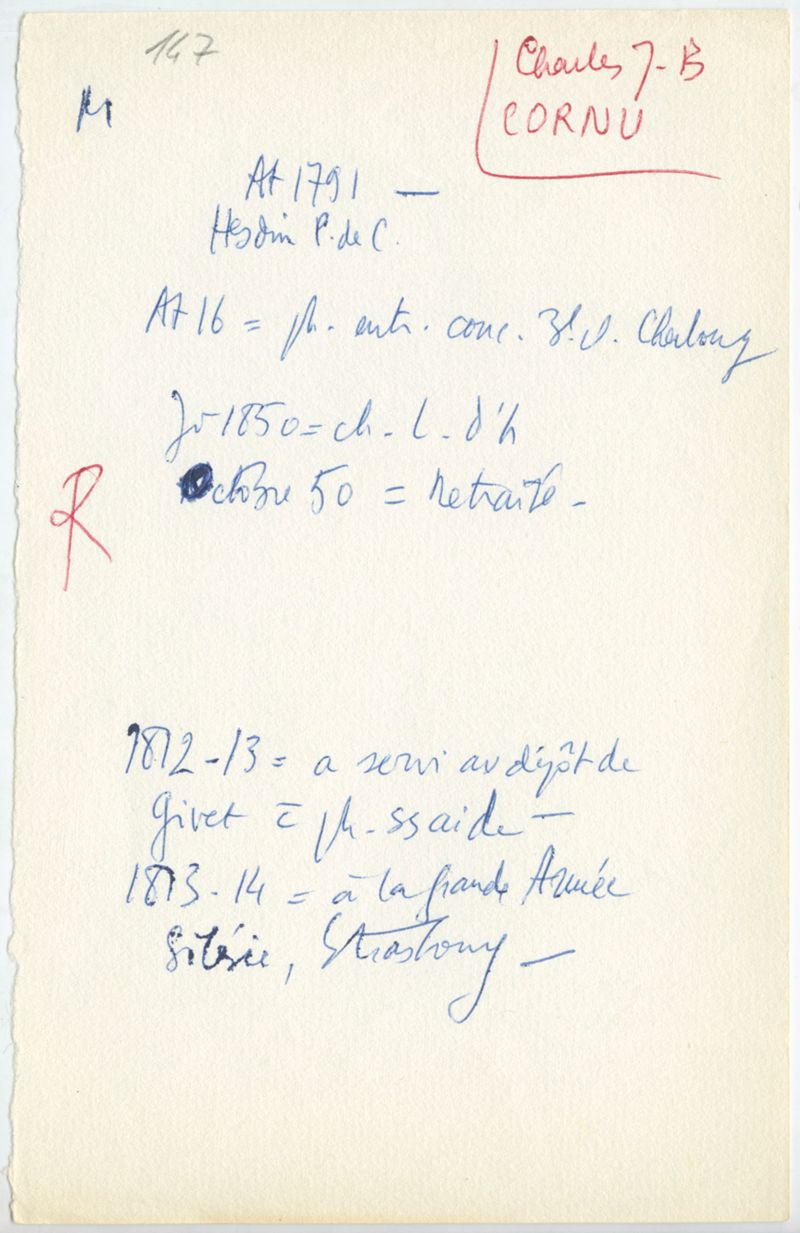 147
M
Charles J-B
CORNU
At 1791 —
Hesdin P. de C.
At 16 = ph. entr. conc.
Jr 1850 = ch. L. d'h
Octobre 50 = Retraité -
R
1812-13 = a servi au dépôt de
Givet c̄ ph. ss aide —
1813-14 = à la grande Armée
Silésie, Strasbourg —